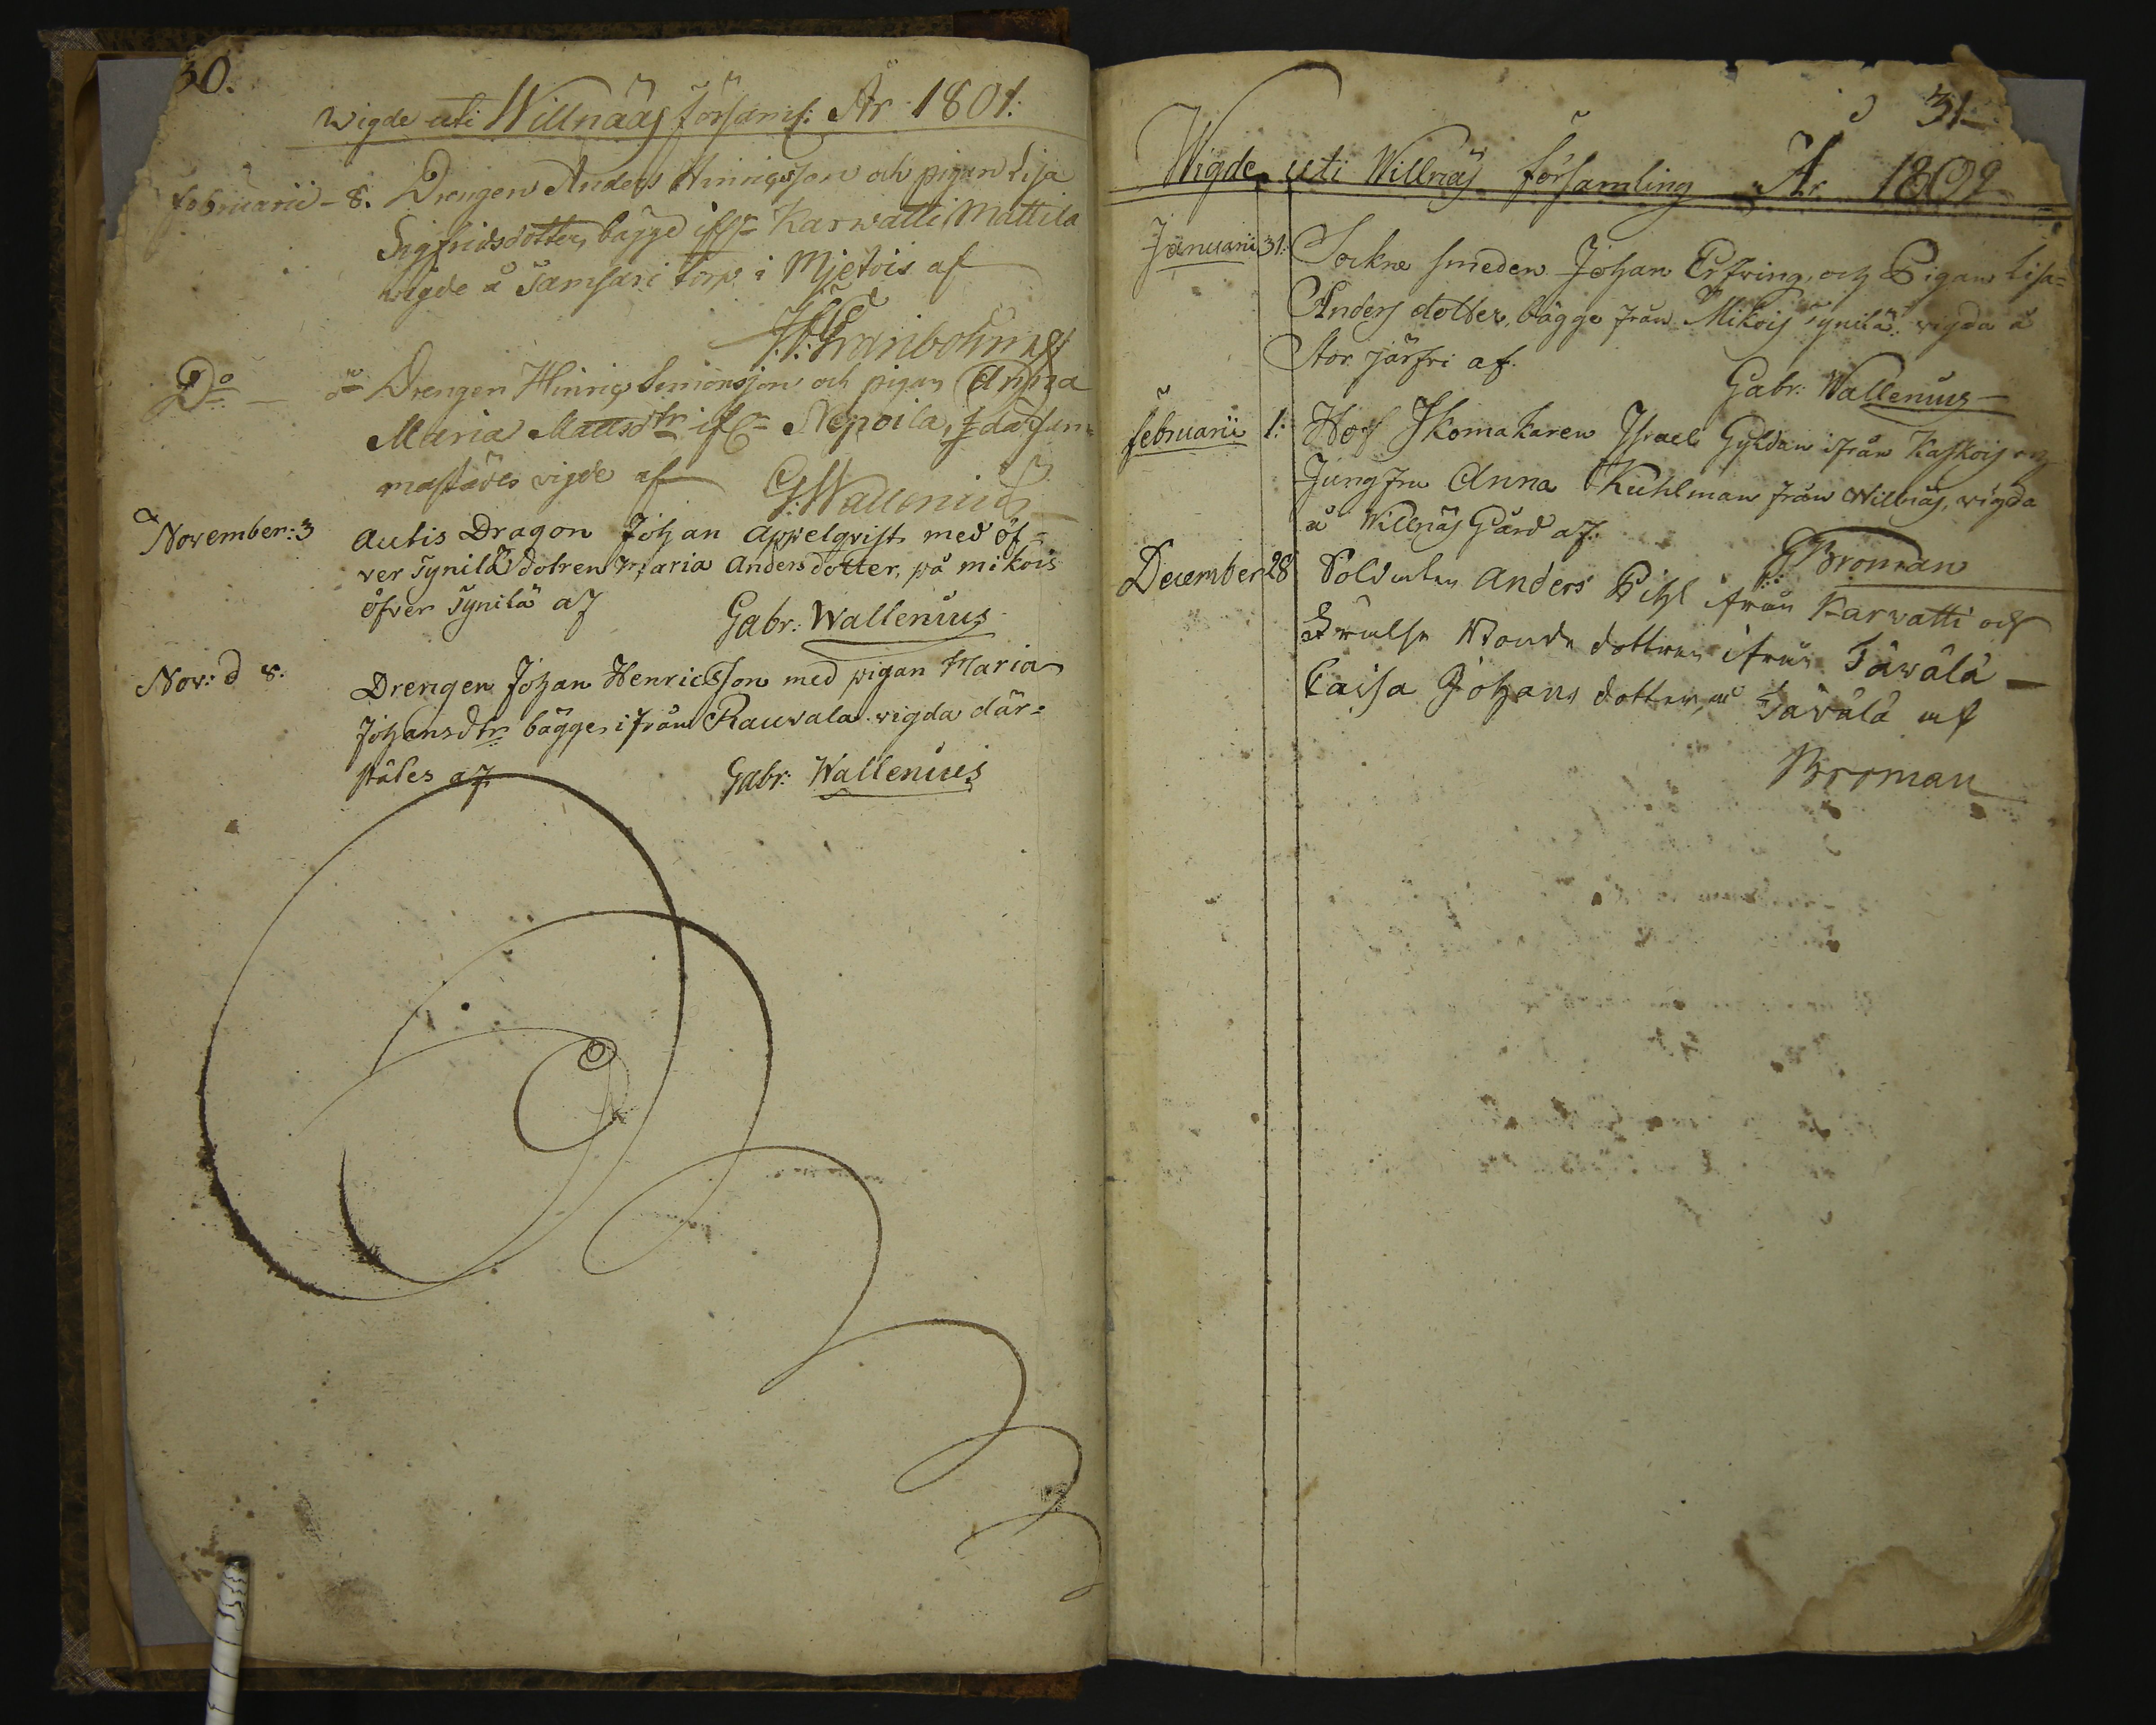 30.
Wigde uti Willnääs församl: År 1801:
Februarii - 8. Drengen Anders Hinrigsson och pigan Lisa
Sigfridsdotter, bägge ifrn Karwatti Mattila
wigde å Samsari torp i Mjetois af
Do - Drengen Hinrig Simonsson och pigan Anna
Maria Mattsdtr ifrn Nepoila,
mastädes vigde af G: Wallenius
November: 3 Autis Dragon Johan Appelqvist med öf-
ver Synilä dotren Maria Andersdotter, på mikois
öfver Synilä af Gabr: Wallenius
Nov: d 8. Drengen Johan Henricsson med pigan Maria
Johansdtr bägge ifrån Rauvala vigda där-
städes af Gabr: Wallenius
31
Wigde uti Willnäs församling År 1802
Januarii 31: Sockne smeden Johan Erfving, och Pigan Lisa=
Anders dotter, bägge från Mikois Synilä vigda å
Stor järfri af.
Gabr: Wallenius
Februarii 1: Hof Skomakaren Israel Gyldan ifrån Kaskois och
Jungfru Anna Kuhlman från Willnäs, vigda
å Willnäs Gård af.
G: Broman
December 28 Soldaten Anders Pihl ifrån Karvatti och
Frälse Bonde dottren ifrån Tävälä
Caisa Johans dotter, å Tävälä af
Broman